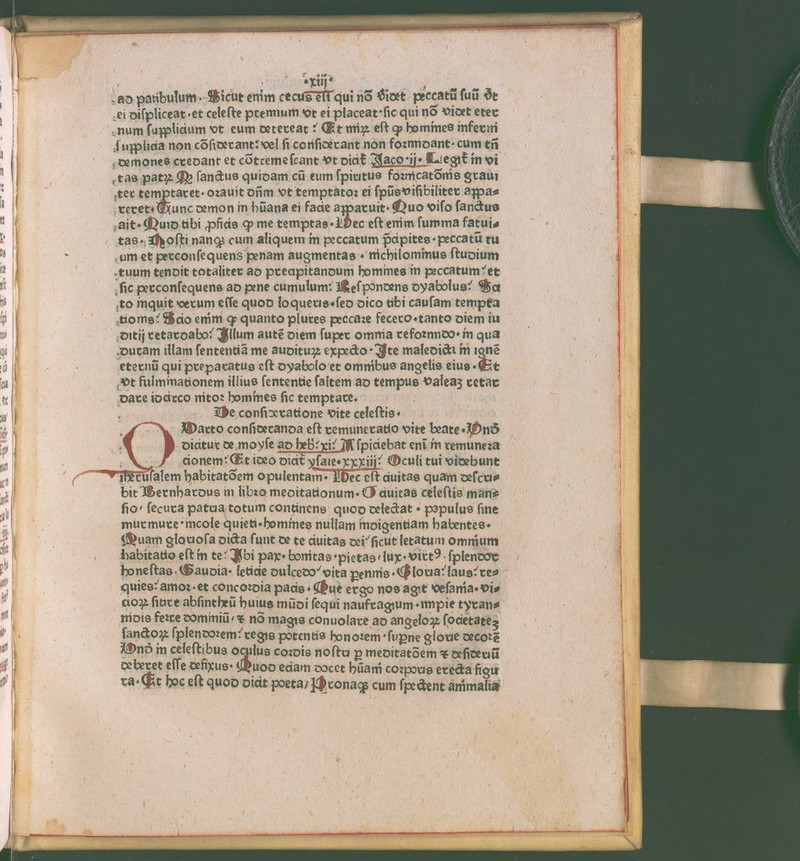 ·xiij·
ad patibulum. Sicut enim cecus est qui nõ videt peccatũ suũ vt
ei displiceat·et celeste premium vt ei placeat·sic qui nõ videt eter
num supplicium vt eum detereat: Et miꝝ est ꝙ homines inferni
supplicia non cõsiderant: vel si considerant non formidant·cum tñ
demones credant et cõtremescant vt dicit̃ Jaco·ij· Legit̃ in vi
tas patꝝ Qꝫ sanctus quidam cũ eum spiritus fornicatõnis graui
ter temptaret·orauit dñm vt temptator ei spũs visibiliter appa⸗
reret·Tunc demon in hũana ei facie apparuit·Quo viso sanctus
ait·Quid tibi ꝓficis ꝙ me temptas·Hec est enim summa fatui⸗
tas·Hosti nanqꝫ cum aliquem in peccatum p̃cipites·peccatũ tu
um et perconsequens penam augmentas·nichilominus studium
tuum tendit totaliter ad precipitandum homines in peccatum:et
sic perconsequens ad pene cumulum: Respondens dyabolus: Sci
to inquit verum esse quod loqueris·sed dico tibi causam tempta
tionis: Scio enim ꝙ quanto plures peccare fecero·tanto diem iu
ditij retardabo: Illum autẽ diem super omnia reformido·in qua
duram illam sententiã me audituꝝ expecto·Ite maledicti in ignẽ
eternũ qui preparatus est dyabolo et omnibus angelis eius·Et
vt fulminationem illius sententie saltem ad tempus valeaꝫ retar
dare idcirco nitor homines sic temptare.
De consideratione vite celestis·
Quarto consideranda est remuneratio vite beate·Vnõ
dicitur de moyse ad heb:xi: Aspiciebat eni in remunera
cionem: Et ideo dicit̃ ysaie·xxxiij: Oculi tui videbunt
iherusalem habitatõem opulentam·Hec est ciuitas quam descri⸗
bit Bernhardus in libro meditationum·O ciuitas celestis man⸗
sio·secura patria totum continens quod delectat·populus sine
murmure·incole quieti·homines nullam indigentiam habentes·
Quam gloriosa dicta sunt de te ciuitas dei:sicut letatum omnium
habitatio est in te: Ibi pax·bonitas·pietas·lux·virtꝰ·splendor
honestas·Gaudia·leticie dulcedo:vita pennis·Gloria:laus:re⸗
quies:amor·et concordia pacis·Que ergo nos agit vesania·vi⸗
cioꝝ sitire absintheũ huius mũdi sequi naufragium·impie tyran⸗
nidis ferre dominiũ·⁊ nõ magis conuolare ad angeloꝝ societateꝫ
sanctoꝝ splendorem:regis potentis honorem·sup̃ne glorie decorẽ
Vnõ in celestibus oculus cordis nostri ꝑ meditatõem ⁊ desideriũ
deberet esse defixus·Quod eciam docet hũani corporis erecta figu
ra·Et hoc est quod dicit poeta/Pronaqꝫ cum spectent animalia